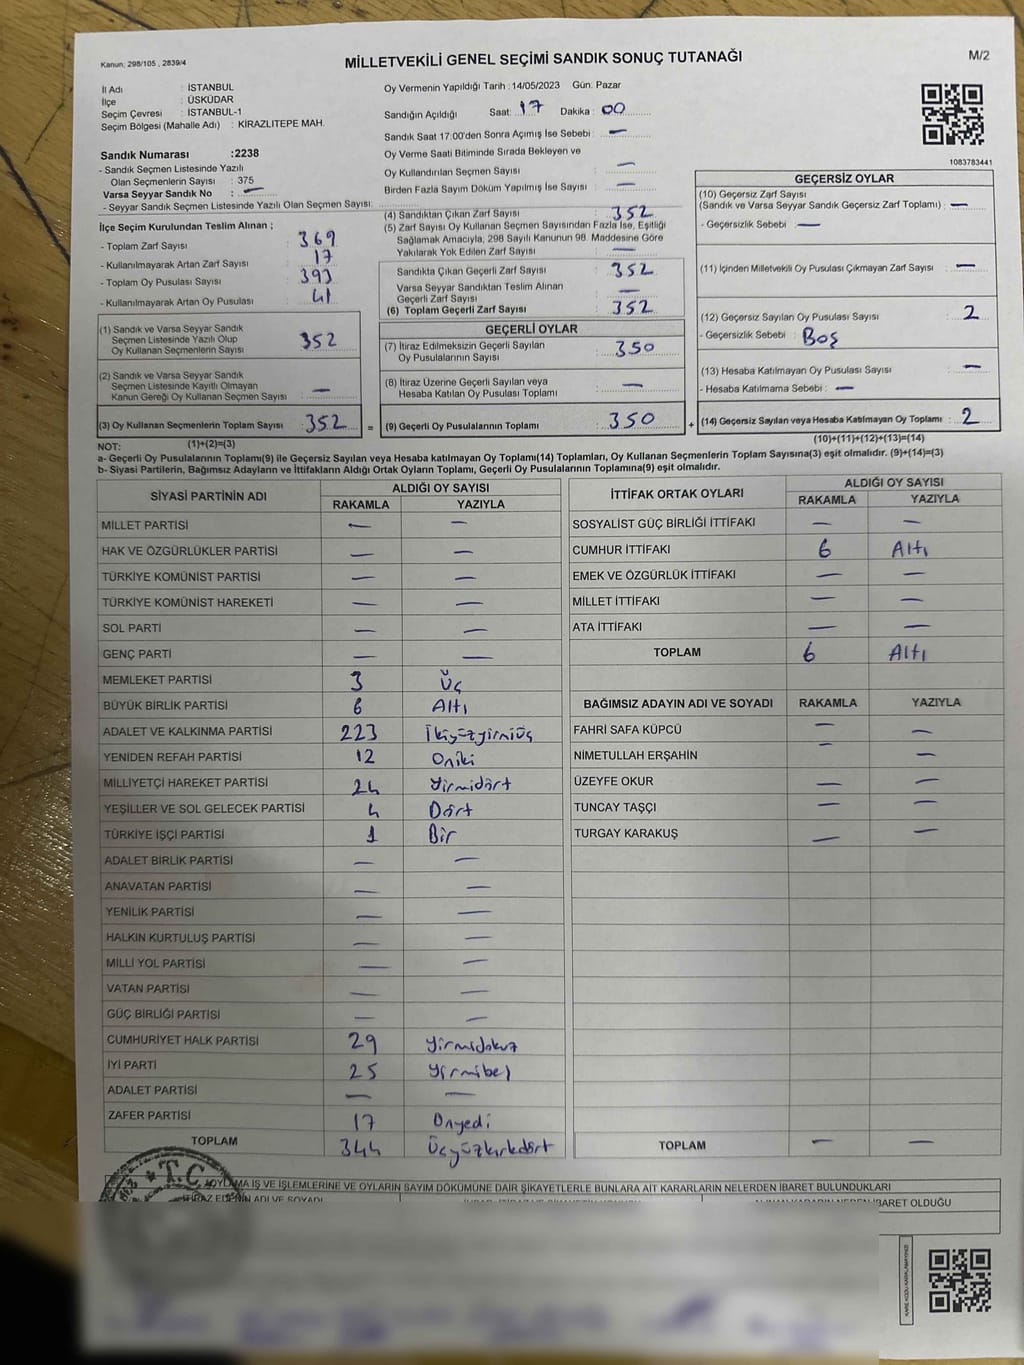 Kanun: 298/105 , 2839/4
MİLLETVEKİLİ GENEL SEÇİMİ SANDIK SONUÇ TUTANAĞI
M/2
İl Adı : İSTANBUL
İlçe : ÜSKÜDAR
Seçim Çevresi : İSTANBUL-1
Seçim Bölgesi (Mahalle Adı) : KİRAZLITEPE MAH.
Sandık Numarası :2238
- Sandık Seçmen Listesinde Yazılı
Olan Seçmenlerin Sayısı : 375
Varsa Seyyar Sandık No : —
- Seyyar Sandık Seçmen Listesinde Yazılı Olan Seçmen Sayısı:
Oy Vermenin Yapıldığı Tarih :14/05/2023 Gün: Pazar
Sandığın Açıldığı Saat: 17 Dakika : 00
Sandık Saat 17:00'den Sonra Açılmış İse Sebebi : —
Oy Verme Saati Bitiminde Sırada Bekleyen ve
Oy Kullandırılan Seçmen Sayısı : —
Birden Fazla Sayım Döküm Yapılmış İse Sayısı : —
1083783441
İlçe Seçim Kurulundan Teslim Alınan ;
- Toplam Zarf Sayısı : 369
- Kullanılmayarak Artan Zarf Sayısı : 17
- Toplam Oy Pusulası Sayısı : 393
- Kullanılmayarak Artan Oy Pusulası : 41
(1) Sandık ve Varsa Seyyar Sandık
Seçmen Listesinde Yazılı Olup
Oy Kullanan Seçmenlerin Sayısı : 352
(2) Sandık ve Varsa Seyyar Sandık
Seçmen Listesinde Kayıtlı Olmayan
Kanun Gereği Oy Kullanan Seçmen Sayısı : —
(3) Oy Kullanan Seçmenlerin Toplam Sayısı : 352 =
(1)+(2)=(3)
(4) Sandıktan Çıkan Zarf Sayısı : 352
(5) Zarf Sayısı Oy Kullanan Seçmen Sayısından Fazla İse, Eşitliği
Sağlamak Amacıyla, 298 Sayılı Kanunun 98. Maddesine Göre
Yakılarak Yok Edilen Zarf Sayısı : —
Sandıkta Çıkan Geçerli Zarf Sayısı : 352
Varsa Seyyar Sandıktan Teslim Alınan
Geçerli Zarf Sayısı : —
(6) Toplam Geçerli Zarf Sayısı : 352
GEÇERLİ OYLAR
(7) İtiraz Edilmeksizin Geçerli Sayılan
Oy Pusulalarının Sayısı : 350
(8) İtiraz Üzerine Geçerli Sayılan veya
Hesaba Katılan Oy Pusulası Toplamı : —
(9) Geçerli Oy Pusulalarının Toplamı : 350 +
GEÇERSİZ OYLAR
(10) Geçersiz Zarf Sayısı
(Sandık ve Varsa Seyyar Sandık Geçersiz Zarf Toplamı) : —
- Geçersizlik Sebebi : —
(11) İçinden Milletvekili Oy Pusulası Çıkmayan Zarf Sayısı : —
(12) Geçersiz Sayılan Oy Pusulası Sayısı : 2
- Geçersizlik Sebebi : Boş
(13) Hesaba Katılmayan Oy Pusulası Sayısı : —
- Hesaba Katılmama Sebebi : —
(14) Geçersiz Sayılan veya Hesaba Katılmayan Oy Toplamı : 2
(10)+(11)+(12)+(13)=(14)
NOT:
a- Geçerli Oy Pusulalarının Toplamı(9) ile Geçersiz Sayılan veya Hesaba katılmayan Oy Toplamı(14) Toplamları, Oy Kullanan Seçmenlerin Toplam Sayısına(3) eşit olmalıdır. (9)+(14)=(3)
b- Siyasi Partilerin, Bağımsız Adayların ve İttifakların Aldığı Ortak Oyların Toplamı, Geçerli Oy Pusulalarının Toplamına(9) eşit olmalıdır.
SİYASİ PARTİNİN ADI ALDIĞI OY SAYISI
RAKAMLA YAZIYLA
MİLLET PARTİSİ — —
HAK VE ÖZGÜRLÜKLER PARTİSİ — —
TÜRKİYE KOMÜNİST PARTİSİ — —
TÜRKİYE KOMÜNİST HAREKETİ — —
SOL PARTİ — —
GENÇ PARTİ — —
MEMLEKET PARTİSİ 3 Üç
BÜYÜK BİRLİK PARTİSİ 6 Altı
ADALET VE KALKINMA PARTİSİ 223 İkiyüzyirmiüç
YENİDEN REFAH PARTİSİ 12 Oniki
MİLLİYETÇİ HAREKET PARTİSİ 24 Yirmidört
YEŞİLLER VE SOL GELECEK PARTİSİ 4 Dört
TÜRKİYE İŞÇİ PARTİSİ 1 Bir
ADALET BİRLİK PARTİSİ — —
ANAVATAN PARTİSİ — —
YENİLİK PARTİSİ — —
HALKIN KURTULUŞ PARTİSİ — —
MİLLİ YOL PARTİSİ — —
VATAN PARTİSİ — —
GÜÇ BİRLİĞİ PARTİSİ — —
CUMHURİYET HALK PARTİSİ 29 Yirmidokuz
İYİ PARTİ 25 Yirmibeş
ADALET PARTİSİ — —
ZAFER PARTİSİ 17 Onyedi
TOPLAM 344 Üçyüzkırkdört
İTTİFAK ORTAK OYLARI ALDIĞI OY SAYISI
RAKAMLA YAZIYLA
SOSYALİST GÜÇ BİRLİĞİ İTTİFAKI — —
CUMHUR İTTİFAKI 6 Altı
EMEK VE ÖZGÜRLÜK İTTİFAKI — —
MİLLET İTTİFAKI — —
ATA İTTİFAKI — —
TOPLAM 6 Altı
BAĞIMSIZ ADAYIN ADI VE SOYADI RAKAMLA YAZIYLA
FAHRİ SAFA KÜPCÜ — —
NİMETULLAH ERŞAHİN — —
ÜZEYFE OKUR — —
TUNCAY TAŞÇI — —
TURGAY KARAKUŞ — —
TOPLAM — —
T.C.
OYLAMA İŞ VE İŞLEMLERİNE VE OYLARIN SAYIM DÖKÜMÜNE DAİR ŞİKAYETLERLE BUNLARA AİT KARARLARIN NELERDEN İBARET BULUNDUKLARI
İTİRAZ EDENİN ADI VE SOYADI
İBARET OLDUĞU